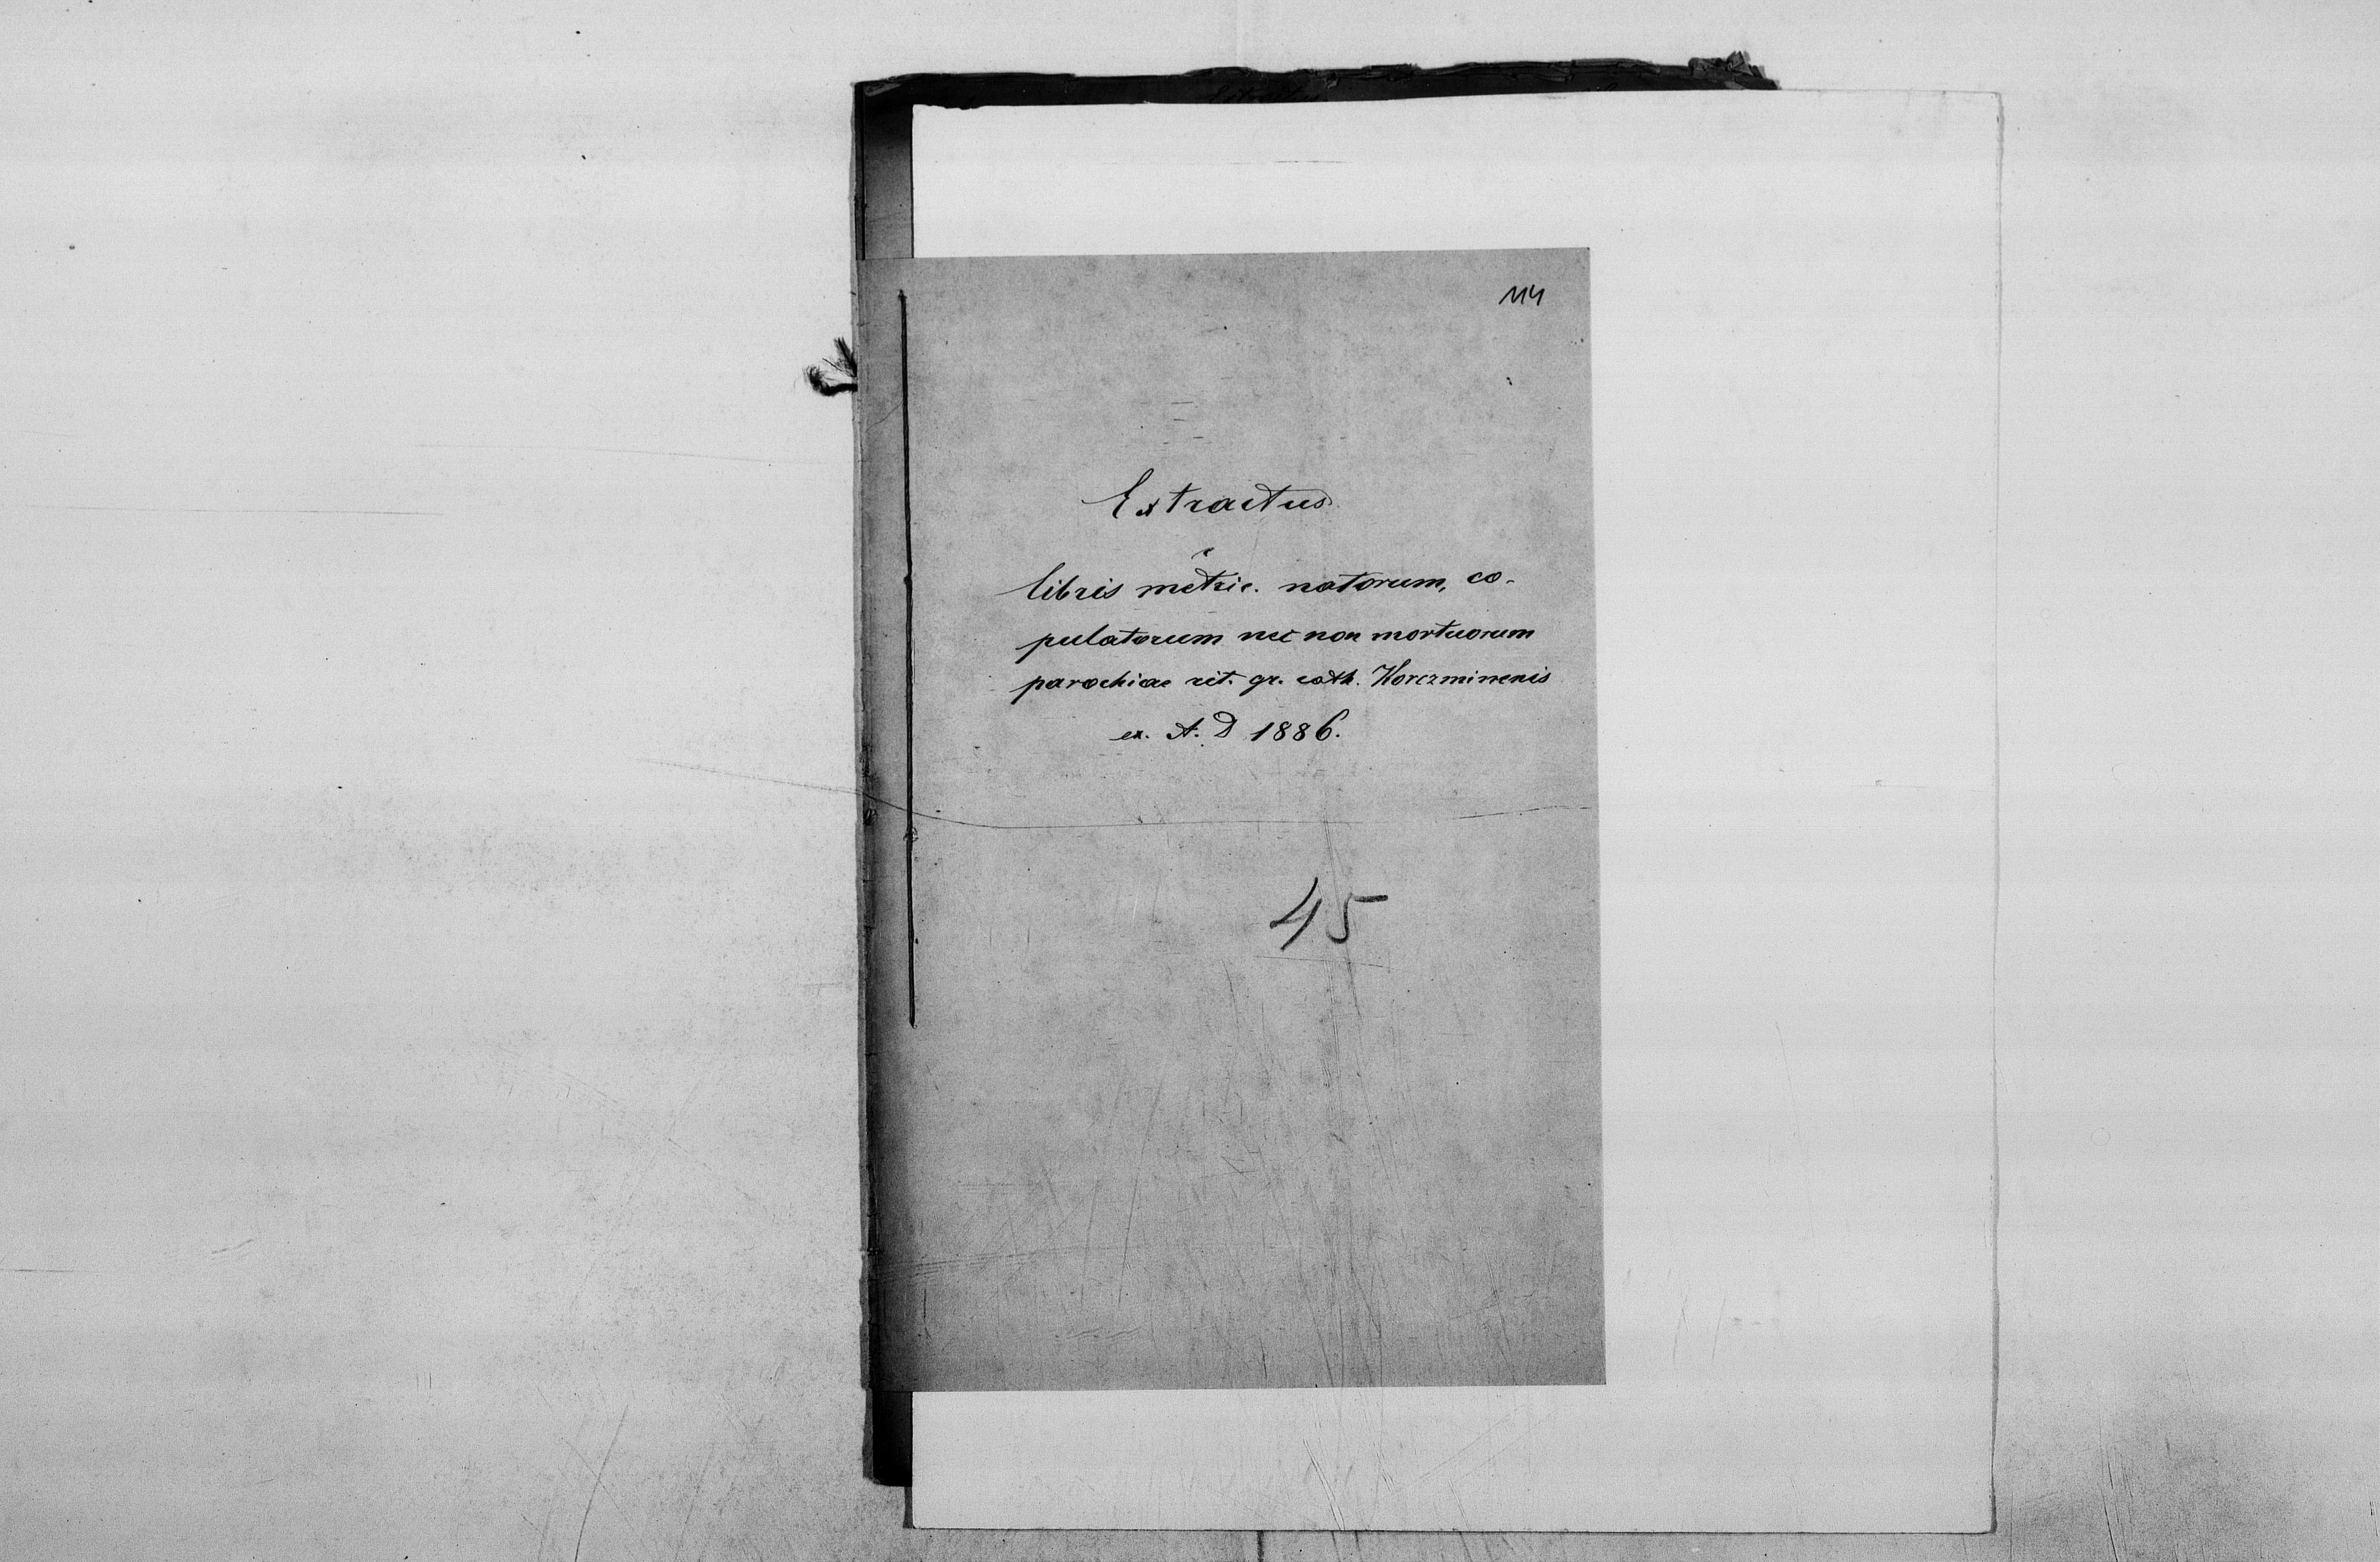 114
Extractus
e
libris metric. natorum, co-
pulatorum nec non mortuorum
parochiae rit. gr. cath. Korczminensis
ex. A. D 1886.
45